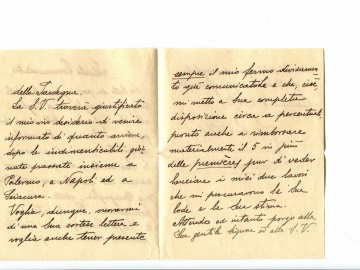 della Sardegna.
La S.V. troverà giustificato
il mio vivo desiderio di venire
informato di quanto avviene,
dopo le indimenticabili gior
nate passate insieme a
Palermo, a Napoli ed a
Siracusa.
Voglia, dunque, onorarmi
di una Sua cortese lettera e
voglia anche tener presente
sempre il mio fermo divisamen
to già comunicatole e che, cioè,
mi metto a Sua completa
disposizione circa a percentuali,
pronto anche a rimborsare
materialmente il 5 in più
delle premières pur di veder
lanciare i miei due lavori
che mi procurarono la Sua
lode e la Sua stima.
Attendo ed intanto porgo alla
Sua gentile Signora ed alla S.V.